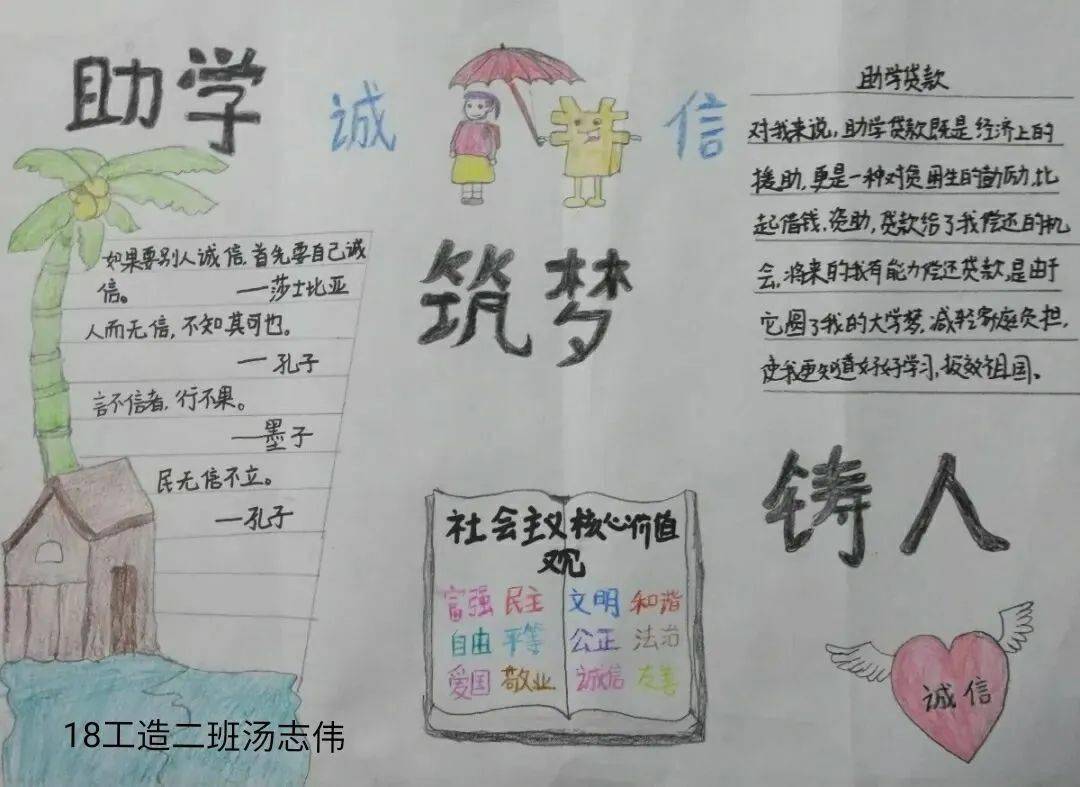 助学
诚
信
筑梦
铸人
如果要别人诚信,首先要自己诚
信。 —莎士比亚
人而无信,不知其可也。
—孔子
言不信者,行不果。
—墨子
民无信不立。
—孔子
助学贷款
对我来说,助学贷款既是经济上的
援助,更是一种对贫困生的励励,比
起借钱,资助,贷款给了我偿还的机
会,将来的我有能力偿还贷款,是由于
它圆了我的大学梦,减轻家庭负担,
使我更知道好好学习,报效祖国。
社会主义核心价值
观
富强 民主 文明 和谐
自由 平等 公正 法治
爱国 敬业 诚信 友善
诚信
18工造二班汤志伟